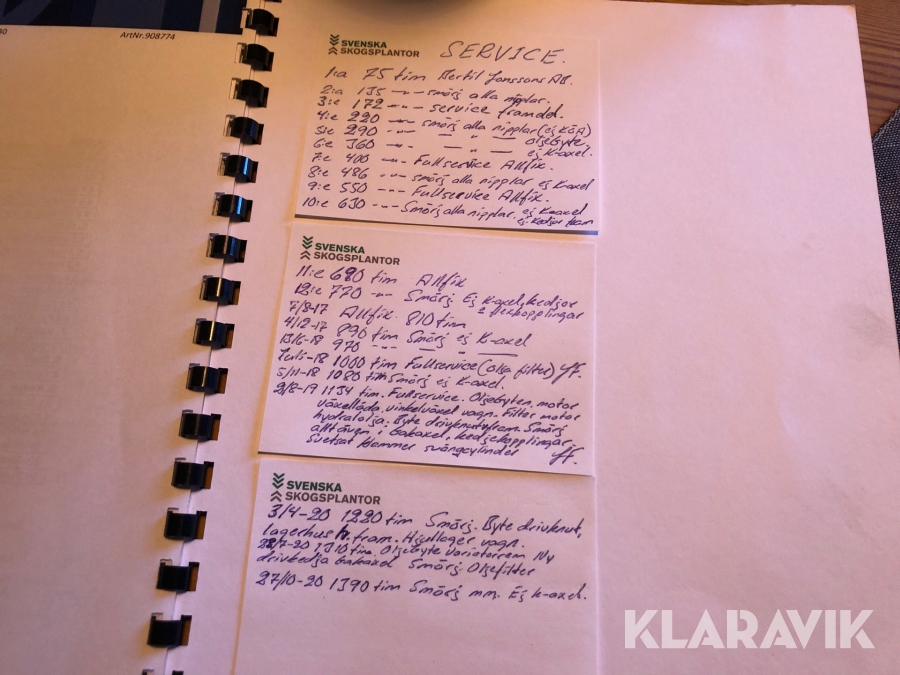 ArtNr.908774
SVENSKA
SKOGSPLANTOR
SERVICE.
1:a 75 tim Bertil Jonssons AB.
2:a 135 -"- smörj alla nipplar.
3:e 172 -"- service framdel.
4:e 220 -"- smörj alla nipplar (ej KÖA)
5:e 290 -"- — " — oljebyte,
6:e 360 -"- — " — ej K-axel.
7:e 400 -"- Fullservice Allfix.
8:e 486 -"- smörj alla nipplar ej K-axel
9:e 550 -"- Fullservice Allfix.
10:e 630 -"- Smörj alla nipplar. ej K-axel
ej kedjor fram
SVENSKA
SKOGSPLANTOR
11:e 680 tim Allfix
12:e 770 -"- Smörj Ej K-axel, kedjor
2 flexkopplingar
7/8-17 Allfix. 810 tim
4/12-17 890 tim Smörj ej K-axel
13/6-18 970 -"- — " —
Juli-18 1000 tim Fullservice (olja filter)
5/11-18 1080 tim Smörj ej K-axel.
2/8-19 1134 tim. Fullservice. Oljebyten, motor
växellåda, vinkelväxel vagn. Filter motor
hydralolja. Byte drivknut v. fram. Smörj
allt även i bakaxel, kedjekopplingar.
Svetsat klammer svängcylinder
SVENSKA
SKOGSPLANTOR
3/4-20 1220 tim Smörj. Byte drivknut,
lagerhus h. fram. Hjullager vagn.
22/7-20 1310 tim. Oljebyte Variatorrem Ny
drivkedja bakaxel Smörj. Oljefilter
27/10-20 1390 tim Smörj mm. Ej K-axel.
KLARAVIK